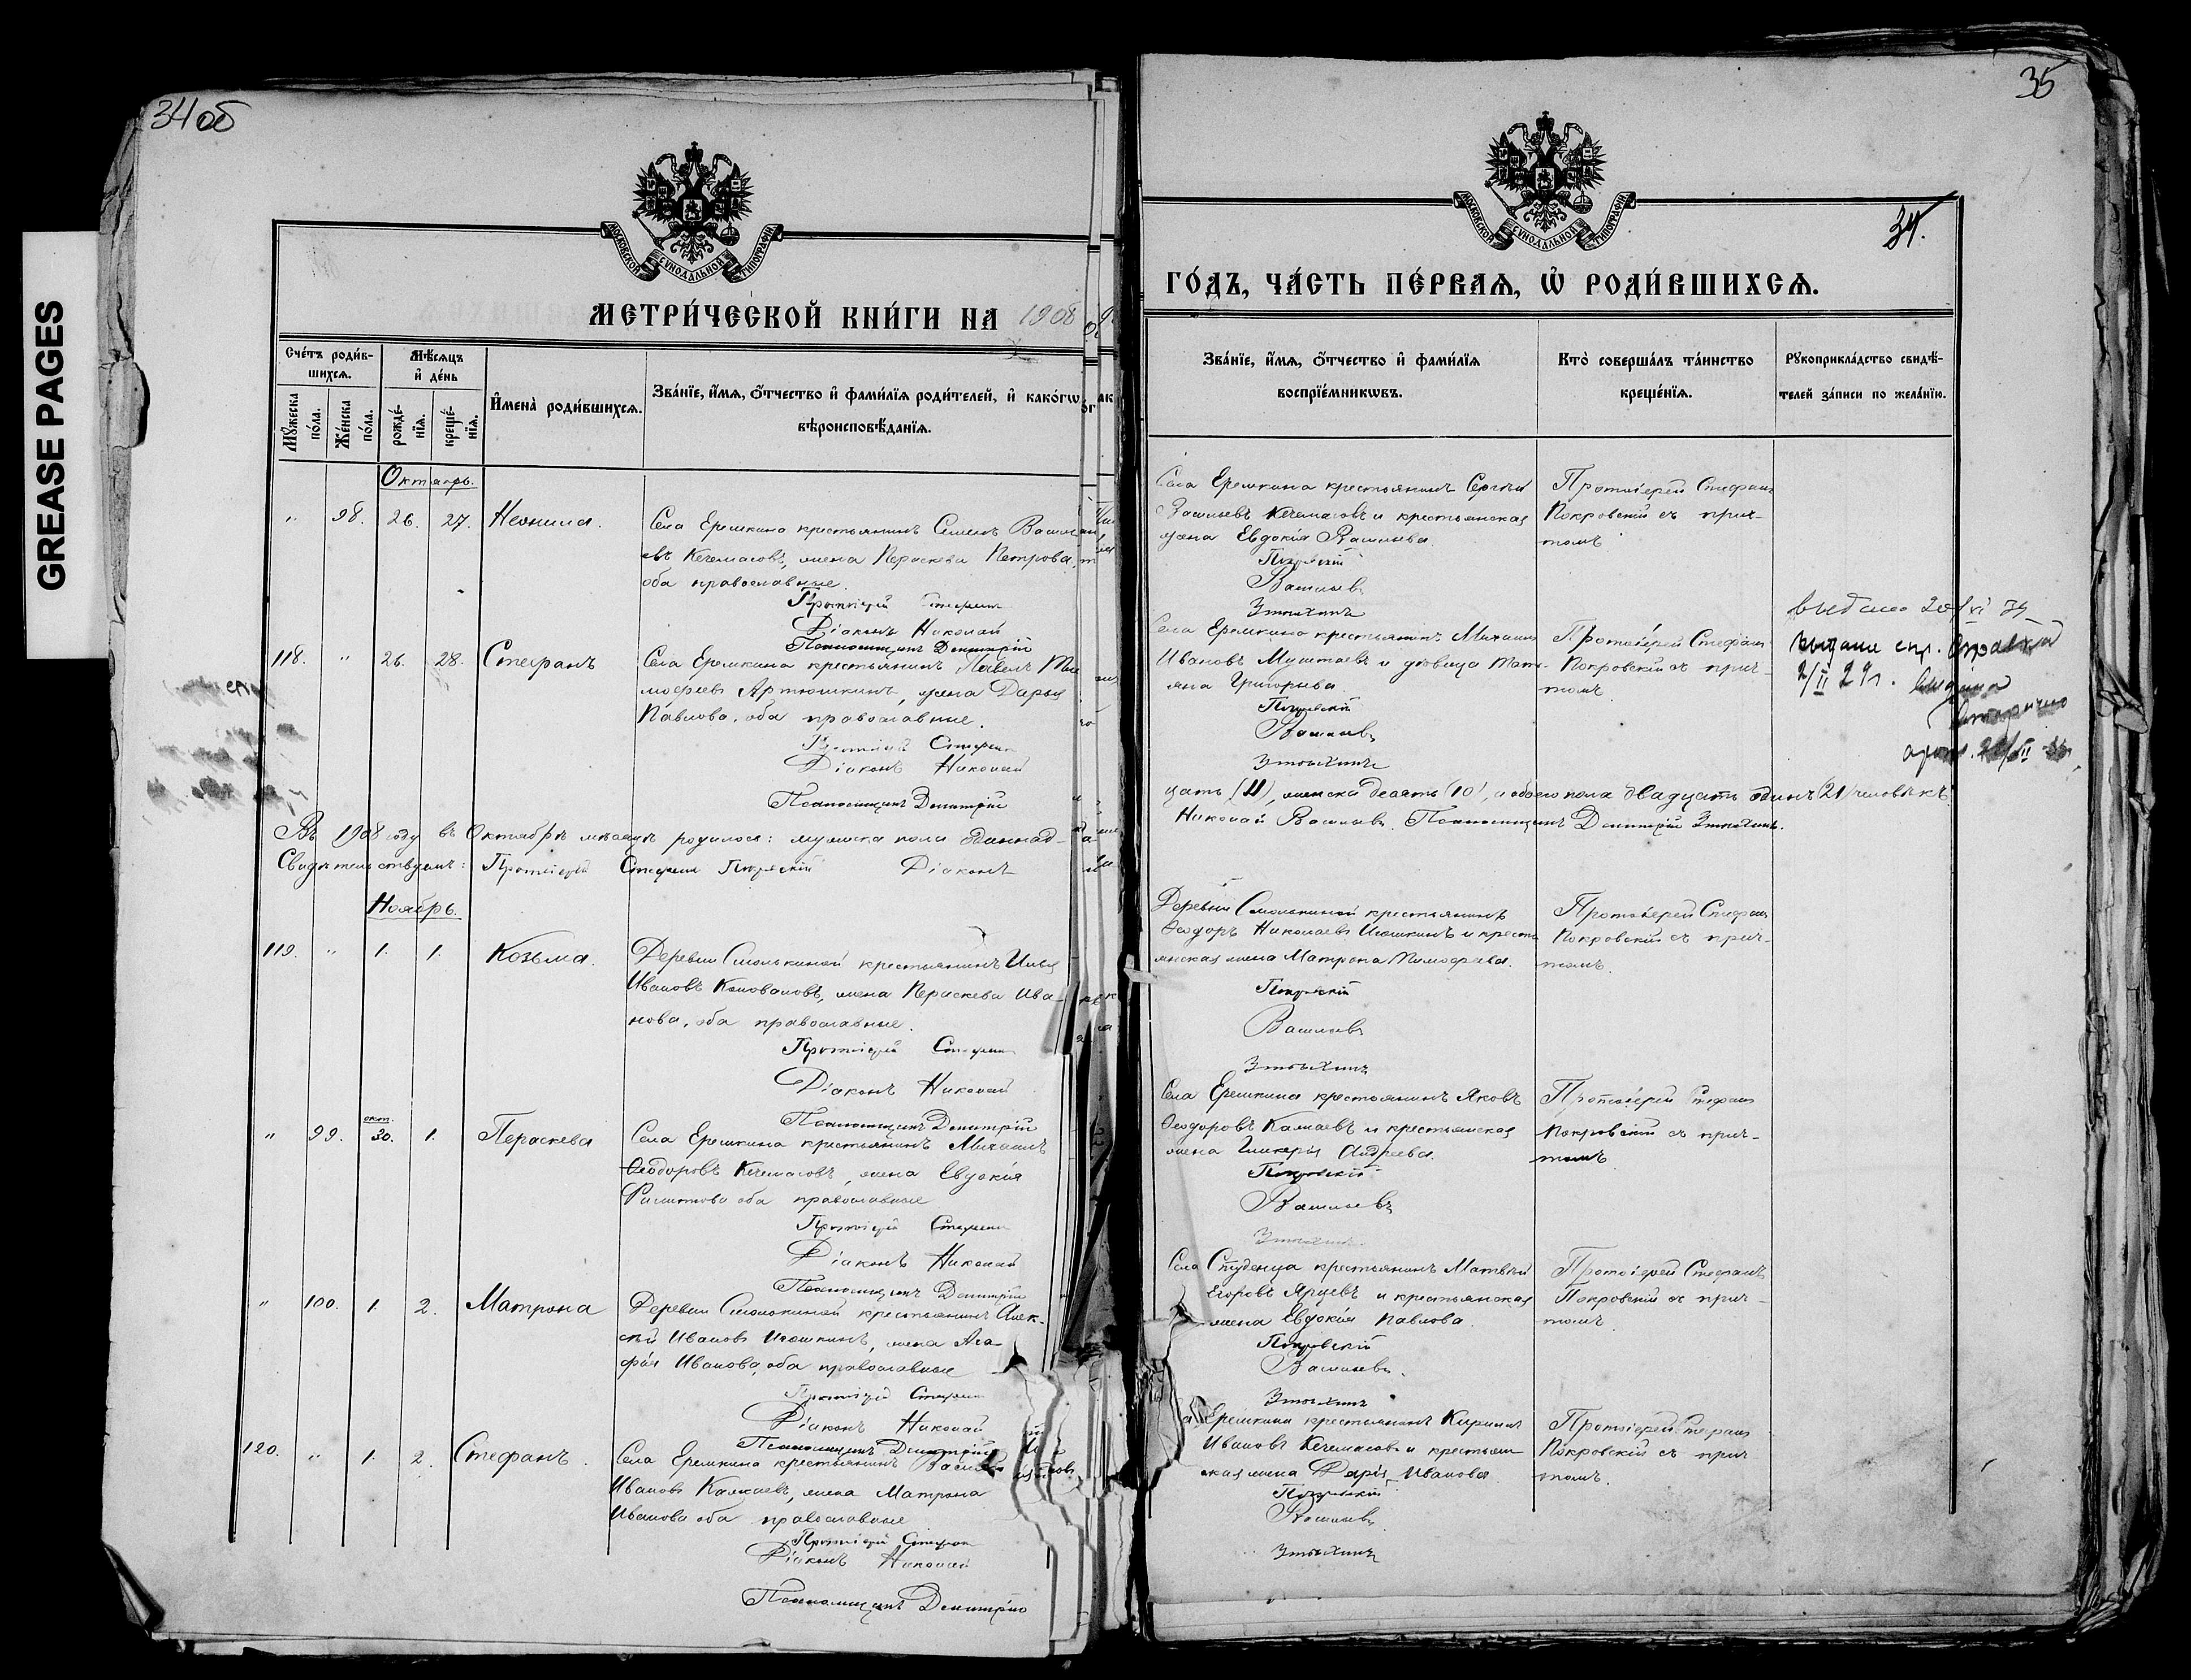 GREASE PAGES
34 об
МОСКОВСКОЙ СѴНОДАЛЬНОЙ ТИПОГРАФІИ
МЕТРИ́ЧЕСКОЙ КНИ́ГИ НА 1908
Сче́тъ роди́в-
шихсѧ.
Мꙋ́жеска по́ла.
Же́нска по́ла.
Мѣ́сѧцъ
и҆ де́нь
рожде́-
нїѧ.
креще́-
нїѧ.
И҆мена̀ роди́вшихсѧ.
Зва́нїе, и҆́мѧ, ѻ҆́тчество и҆ фами́лїѧ роди́телей, и҆ како́гѡ
вѣроисповѣ́данїѧ.
Октябрь.
" 98. 26. 27. Неонила. Села Еремкина крестьянинъ Семенъ Василь
евъ Кечемасовъ, жена Параскева Петрова,
оба православные.
Протоіерей Стефанъ
Діаконъ Николай
Псаломщикъ Димитрій
118. " 26. 28. Стефанъ Села Еремкина крестьянинъ Павелъ Тим
мофеевъ Артюшкинъ, жена Дарья
Павлова, оба православные.
Протоіерей Стефанъ
Діаконъ Николай
Псаломщикъ Димитрій
Въ 1908 году въ Октябрѣ мѣсяцѣ родилося: мужска пола одиннад-
Свидѣтельствуемъ: Протоіерей Стефанъ Покровскій Діаконъ
Ноябрь.
119. " 1. 1. Козьма. Деревни Смолькиной крестьянинъ Илья
Ивановъ Коноваловъ, жена Параскева Ива-
нова, оба православные.
Протоіерей Стефанъ
Діаконъ Николай
Псаломщикъ Димитрій
" 99. окт. 30. 1. Параскева Села Еремкина крестьянинъ Михаилъ
Ѳеодоровъ Кечемасовъ, жена Евдокія
Филиппова оба православные
Протоіерей Стефанъ
Діаконъ Николай
Псаломщикъ Димитрій
" 100. 1. 2. Матрона Деревни Смолькиной крестьянинъ Алек-
сѣй Ивановъ Игошкинъ, жена Ага-
фія Иванова, оба православные
Протоіерей Стефанъ
Діаконъ Николай
Псаломщикъ Димитрій
120. " 1. 2. Стефанъ. Села Еремкина крестьянинъ Василій
Ивановъ Калкаевъ, жена Матрона
Иванова оба православные
Протоіерей Стефанъ
Діаконъ Николай
Псаломщикъ Димитрій
35
34.
МОСКОВСКОЙ СѴНОДАЛЬНОЙ ТИПОГРАФІИ
ГО́ДЪ, ЧА́СТЬ ПЕ́РВАѦ, Ѽ РОДИ́ВШИХСѦ.
Зва́нїе, и҆́мѧ, ѻ҆́тчество и҆ фами́лїѧ
воспрїе́мникѡвъ.
Кто̀ соверша́лъ та́инство
креще́нїѧ.
Рꙋкоприкла́дство свидѣ́-
телей за́писи по жела́нїю.
Села Еремкина крестьянинъ Сергѣй
Васильевъ Кечемасовъ и крестьянская
жена Евдокія Васильева
Покровскій
Васильевъ
Протоіерей Стефанъ
Покровскій съ прич-
томъ
Села Еремкина крестьянинъ Михаилъ
Ивановъ Муштаевъ и дѣвица Тать-
яна Григорьева
Покровскій
Васильевъ
Протоіерей Стефанъ
Покровскій съ прич-
томъ
выдана спр.
2/II 29 г.
цать (11), женска десять (10), а обоего пола двадцать одинъ (21) человѣкъ
Николай Васильевъ. Псаломщикъ Димитрій
Деревни Смолькиной крестьянинъ
Ѳеодоръ Николаевъ Игошкинъ и кресть
янская жена Матрона Тимофеева.
Покровскій
Васильевъ
Протоіерей Стефанъ
Покровскій съ прич-
томъ.
Села Еремкина крестьянинъ Яковъ
Ѳеодоровъ Калкаевъ и крестьянская
жена Гликерія Андреева.
Покровскій
Васильевъ
Протоіерей Стефанъ
Покровскій съ прич-
томъ
Села Студенца крестьянинъ Матвѣй
Егоровъ Ярцевъ и крестьянская
жена Евдокія Павлова
Покровскій
Васильевъ.
Протоіерей Стефанъ
Покровскій съ прич-
томъ
Еремкина крестьянинъ Кириллъ
Ивановъ Кечемасовъ и крестьян
ская жена Дарія Иванова
Покровскій
Васильевъ
Протоіерей Стефанъ
Покровскій съ прич
томъ.